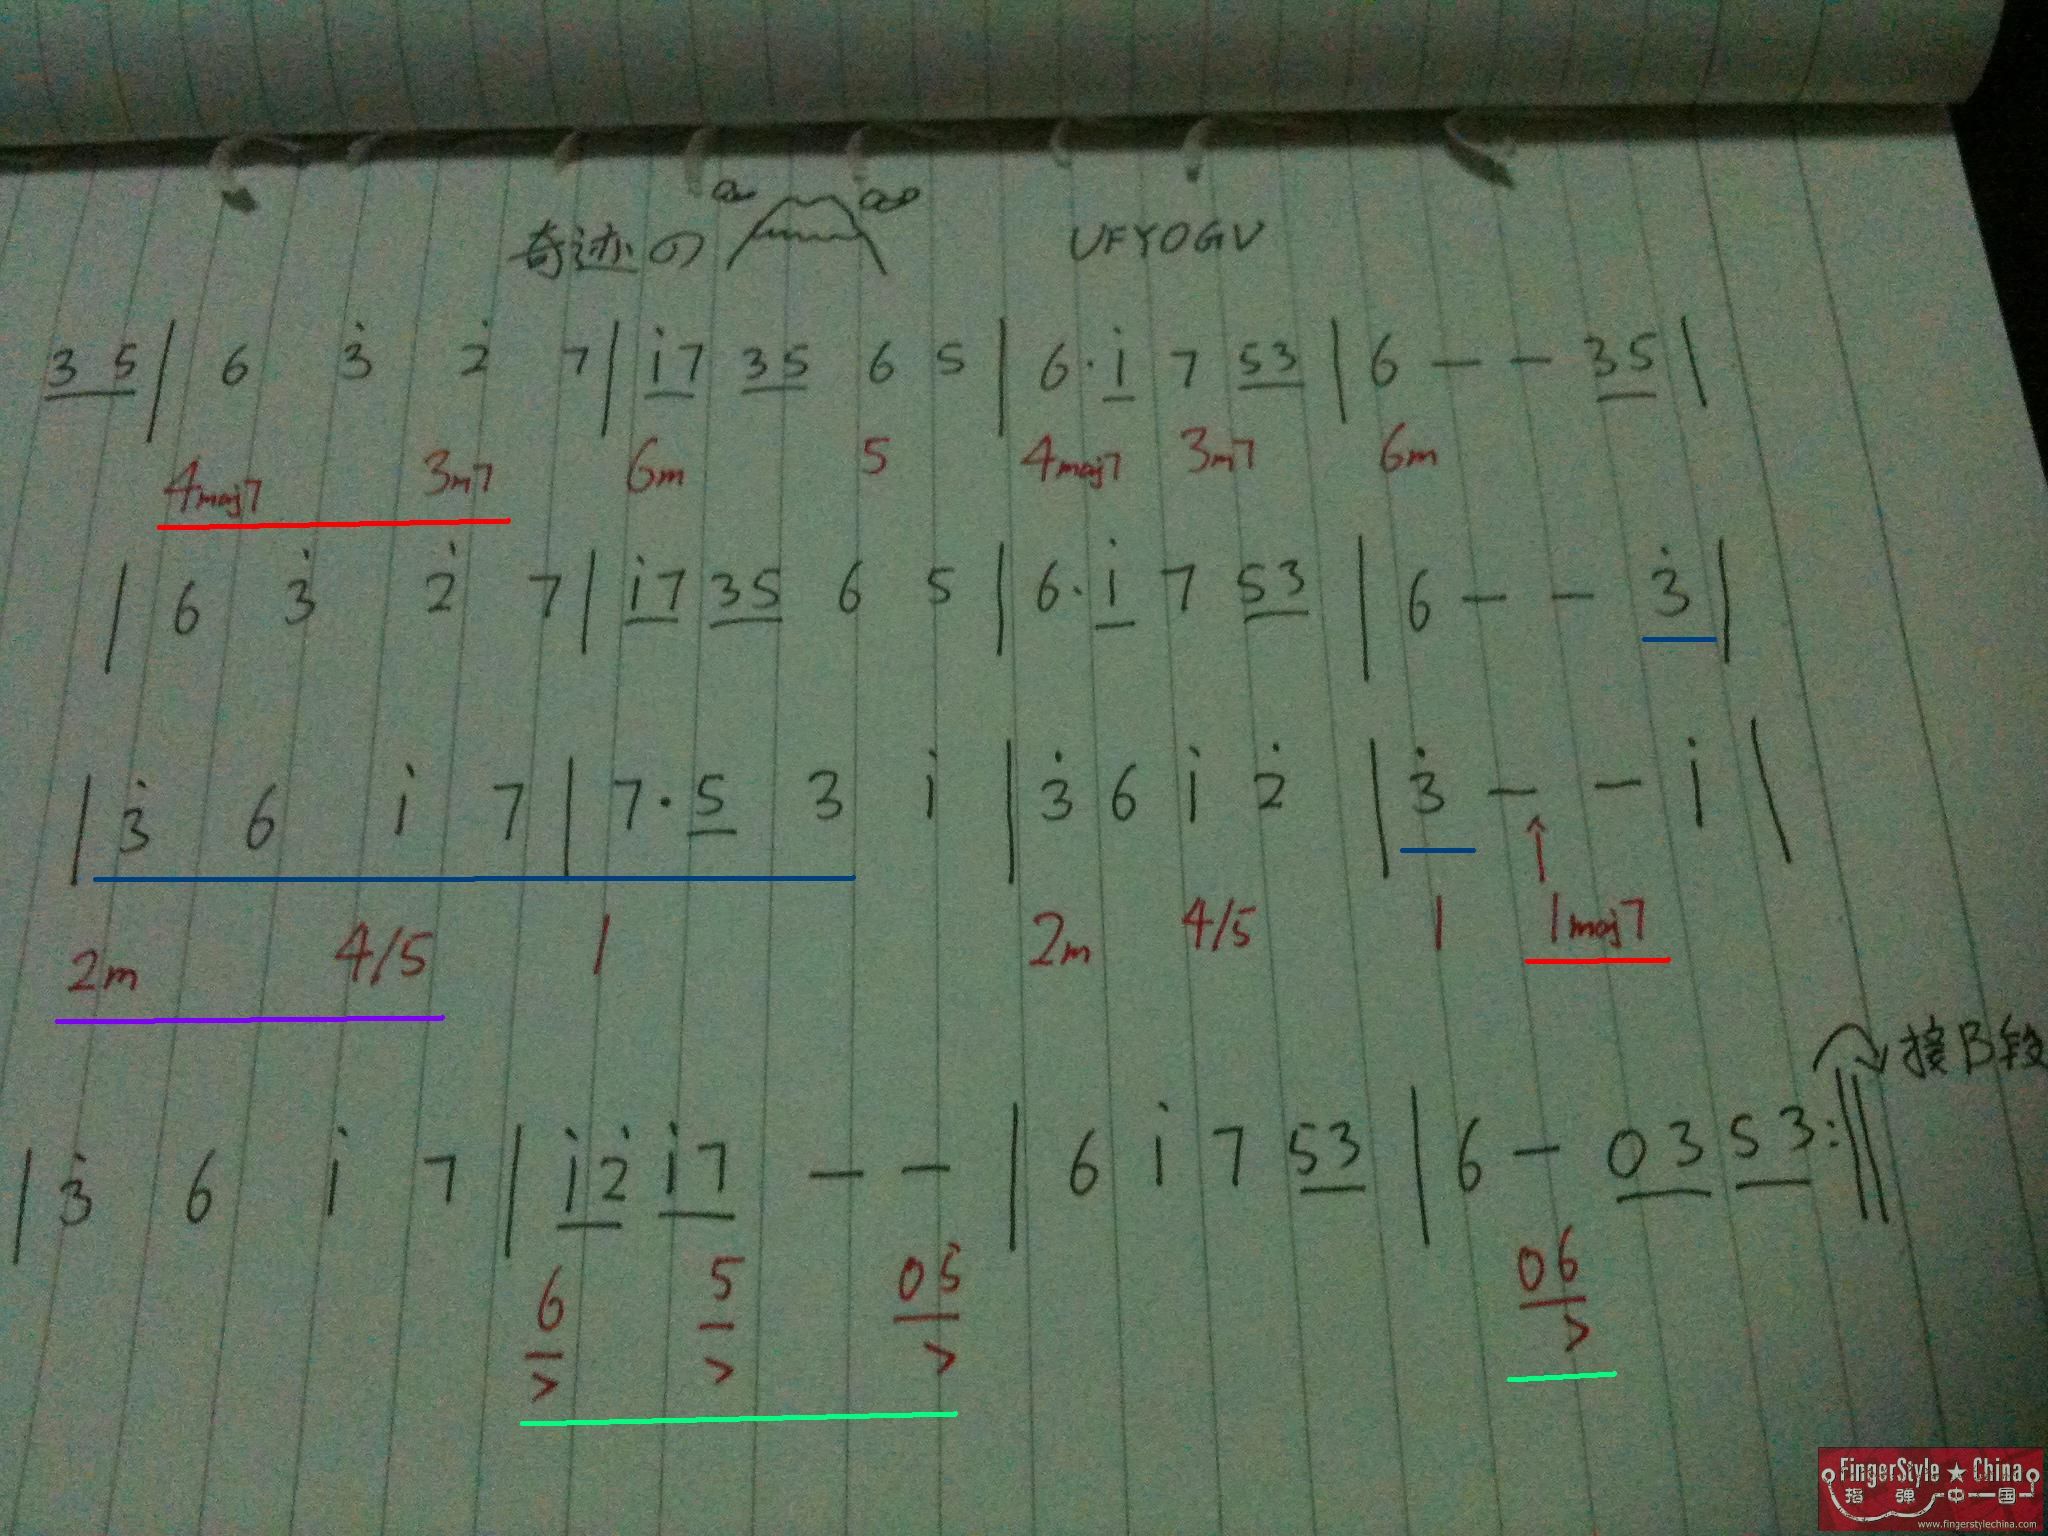 奇迹の UFYOGV
3 5 | 6 3̇ 2̇ 7 | i 7 3 5 6 5 | 6 · i 7 5 3 | 6 — — 3 5 |
4maj7 3m7 6m 5 4maj7 3m7 6m
| 6 3̇ 2̇ 7 | i 7 3 5 6 5 | 6 · i 7 5 3 | 6 — — 3̇ |
| 3̇ 6 i 7 | 7 · 5 3 i | 3̇ 6 i 2̇ | 3̇ — — i |
2m 4/5 1 2m 4/5 1 1maj7
接B段
| 3̇ 6 i 7 | i 2̇ i 7 — — | 6 i 7 5 3 | 6 — 0 3 5 3 :||
6 5 0 5 0 6
> > > >
FingerStyle ★ China
指弹中国
www.fingerstylechina.com